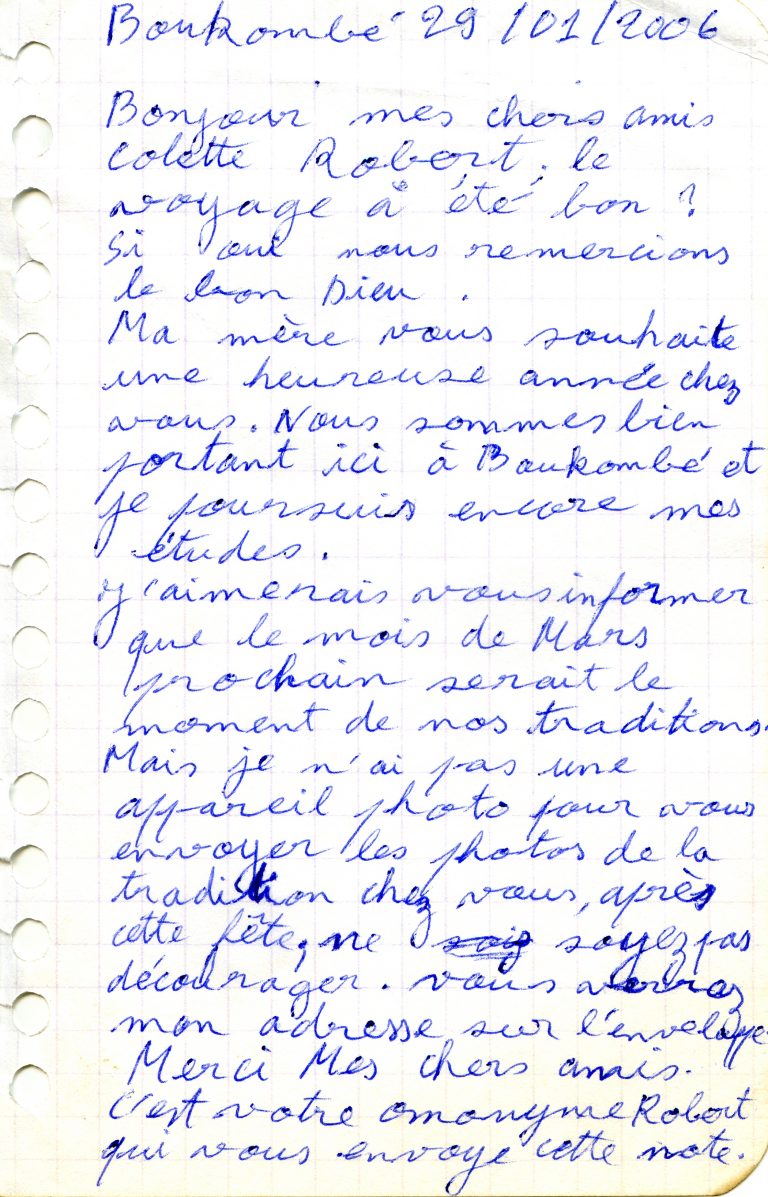 Boukombé 29/01/2006
Bonjour mes chers amis
Colette Robert, le
voyage à été bon ?
Si oui nous remercions
le bon Dieu.
Ma mère vous souhaite
une heureuse année chez
vous. Nous sommes bien
portant ici à Boukombé et
je poursuis encore mes
études.
J'aimerais vous informer
que le mois de Mars
prochain serait le
moment de nos traditions.
Mais je n'ai pas une
appareil photo pour vous
envoyer les photos de la
tradition chez vous, après
cette fête, ne sois soyez pas
décourager. vous verrez
mon adresse sur l'enveloppe.
Merci Mes chers amis.
C'est votre omonyme Robert
qui vous envoye cette note.